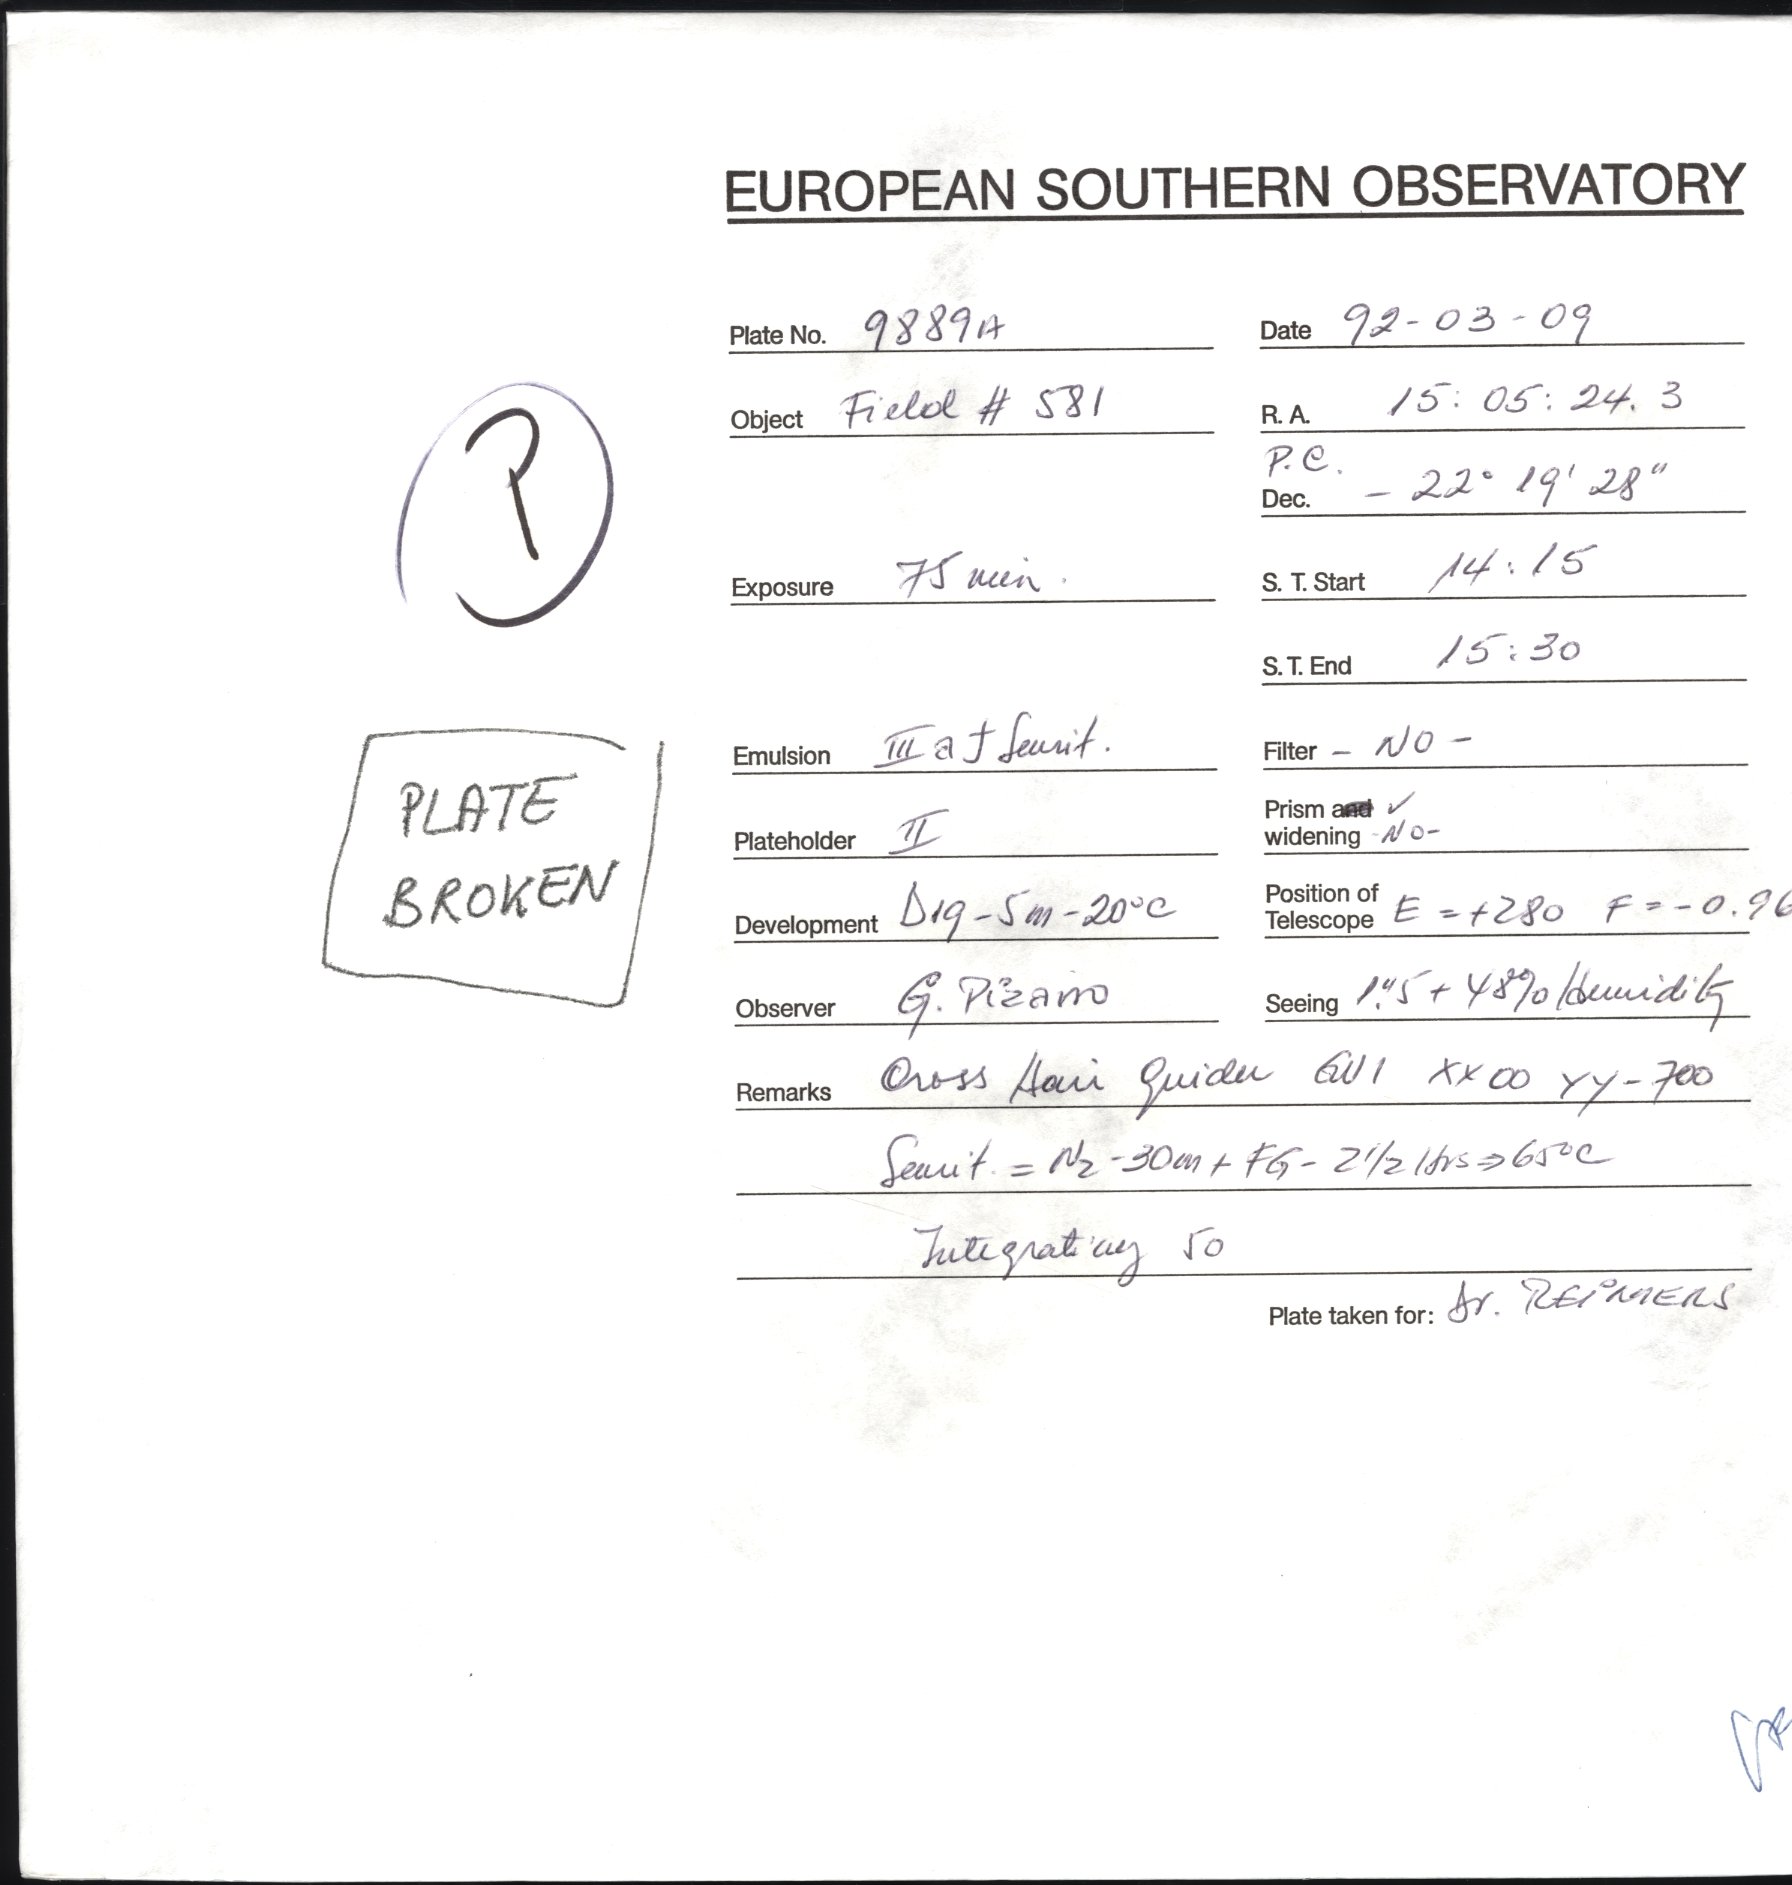 EUROPEAN SOUTHERN OBSERVATORY
Plate No. 9889A
Date 92-03-09
Object Field # 581
R. A. 15: 05: 24. 3
P.C.
Dec. - 22° 19' 28"
Exposure 75 min.
S. T. Start 14:15
S. T. End 15:30
Emulsion III a J Sensit.
Filter - NO -
Prism and ✓
widening -NO-
Plateholder II
Development D19-5m-20°C
Position of
Telescope E = +280 F = -0.96
Observer G. Pizarro
Seeing 1".5 + 48% Humidity
Remarks Cross Hair Guider XX 00 YY-700
Sensit. = N2 -30m + FG - 2 1/2 Hrs ⇒ 65°C
Integrating 50
Plate taken for: Dr. REIMERS
P
PLATE
BROKEN